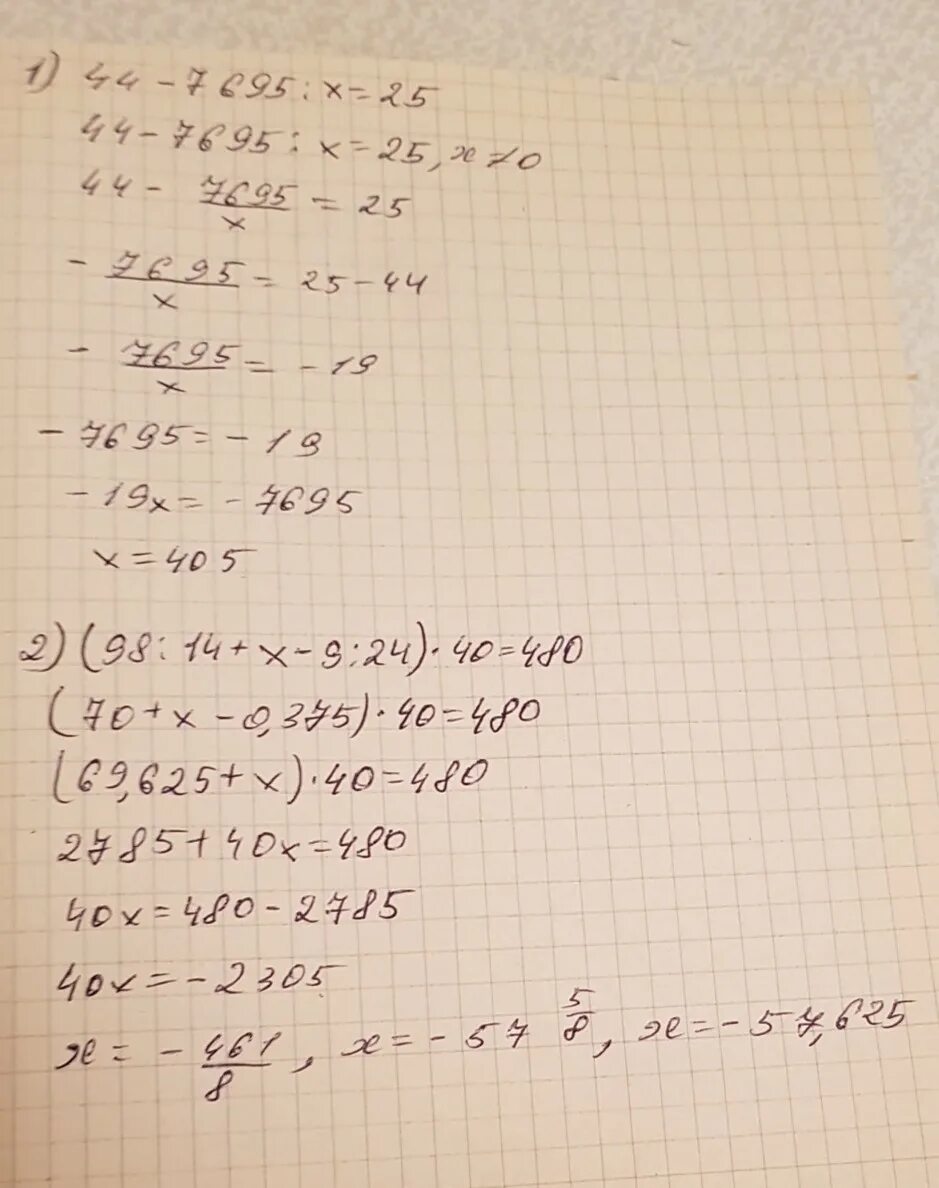 1) 44 - 7695 : x = 25
44 - 7695 : x = 25, x ≠ 0
44 - 7695/x = 25
- 7695/x = 25 - 44
- 7695/x = - 19
- 7695 = - 19
- 19x = - 7695
x = 405
2) (98 : 14 + x - 9 : 24) · 40 = 480
(70 + x - 0,375) · 40 = 480
(69,625 + x) · 40 = 480
2785 + 40x = 480
40x = 480 - 2785
40x = - 2305
x = - 461/8, x = - 57 5/8, x = - 57,625